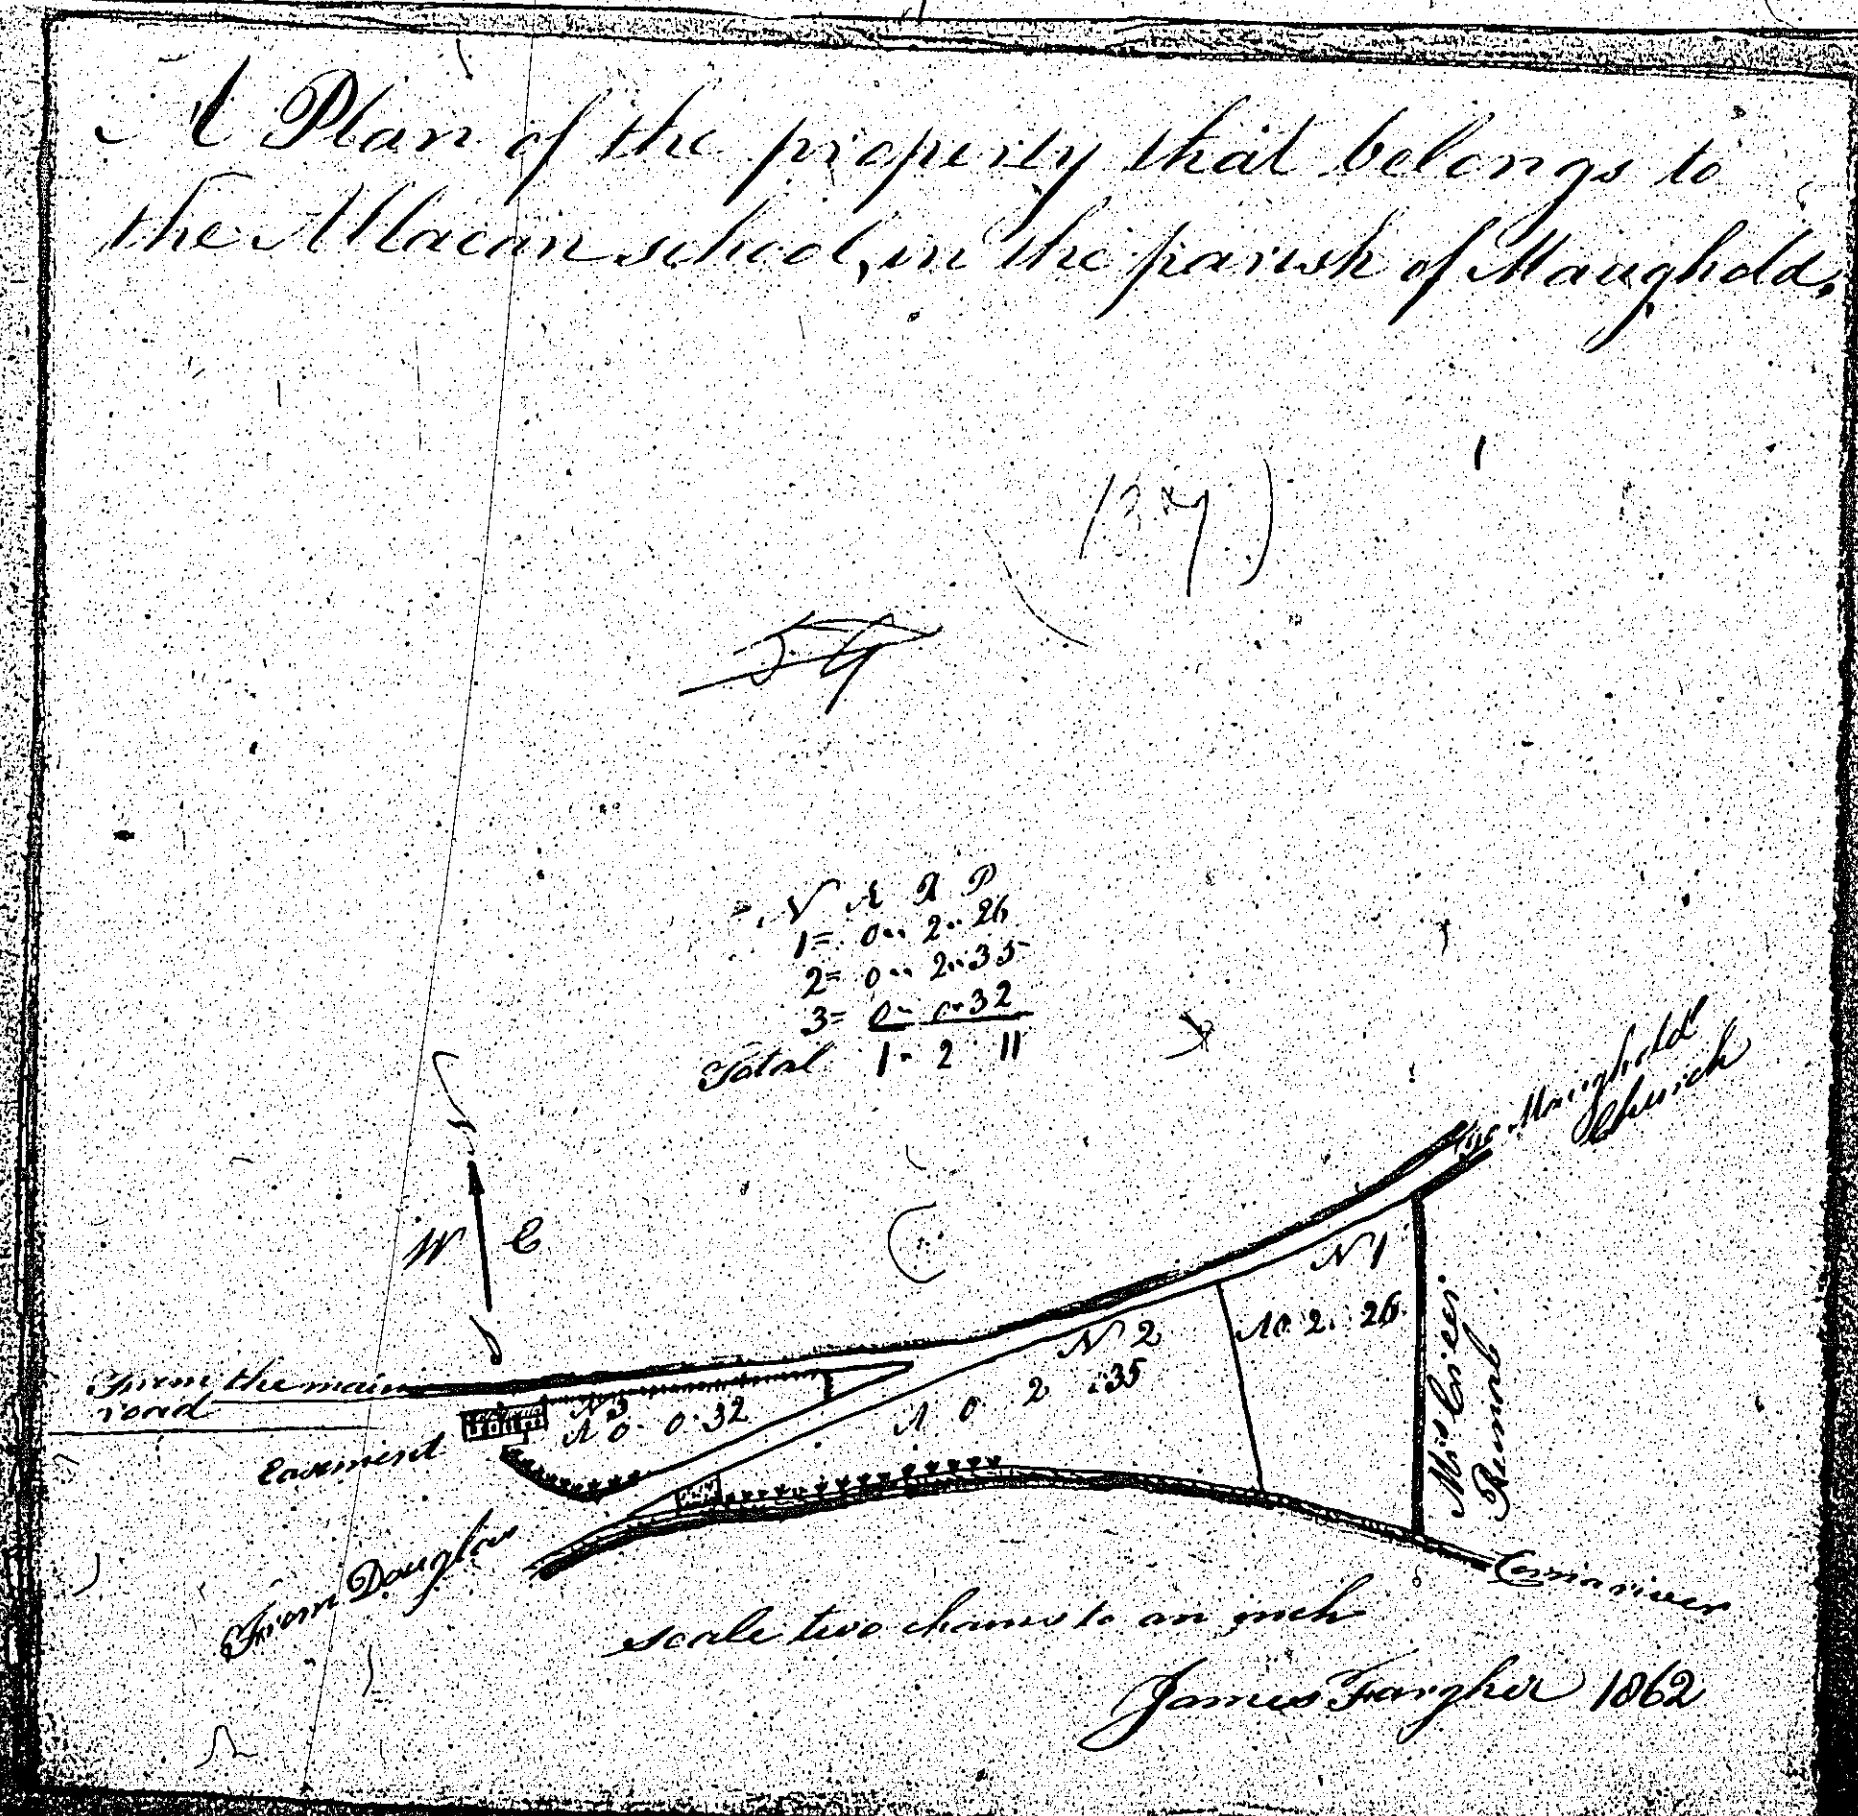 A Plan of the property that belongs to
the Macan school, in the parish of Maughold,
N A R P
1= 0.. 2.. 26
2= 0.. 2.. 35
3= 0.. 0.. 32
Total 1.. 2 11
N
W E
S
Maughold
Church
N 1
A 0. 2. 26.
N 2
A 0 2 :35
N 3
A 0. 0. 32
From the main
road
Easement
From Douglas
Corna river
scale two chains to an inch
James Fargher 1862